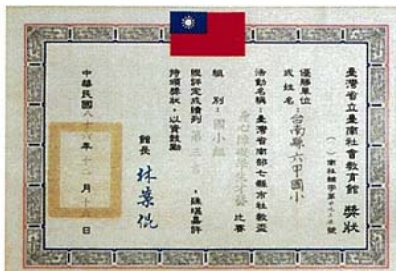 臺灣省立臺南社會教育館 獎狀
優勝單位
或 姓 名：台南縣六甲國小
活動名稱：臺灣省南部七縣市社教盃
身心障礙 才藝 比賽
組 別：國小組
經評定成績列 第三名 ，殊堪嘉許
特頒獎狀，以資鼓勵
館長 林
中華民國八十六年十二月十六日